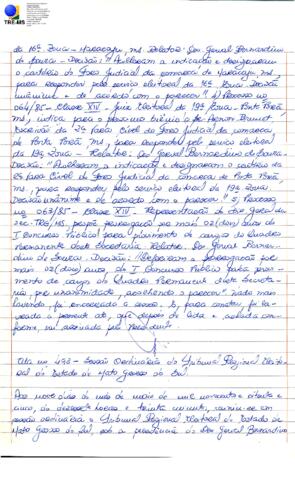 TRE-MS
da 16ª Zona - Maracaju, ms. Relator: Des. Gerval Bernardino
de Souza - Decisão: "Acolheram a indicação e designaram
o cartório do Foro Judicial da comarca de Maracaju, ms,
para responder pelo serviço eleitoral da 16ª Zona. Decisão
unânime e de acordo com o parecer." 4) Processo nº
064/85 - Classe XIV - Juiz Eleitoral da 19ª Zona - Ponta Porã
ms, indica para o
Escrivão da 2ª Vara Cível do Foro Judicial da comarca
de Ponta Porã, ms, para responder pelo serviço eleitoral
da 19ª Zona - Relator: Des. Gerval Bernardino de Souza.
Decisão: "Acolheram a indicação e designaram o cartório da
2ª Vara Cível do Foro Judicial da comarca de Ponta Porã
ms, para responder pelo serviço eleitoral da 19ª Zona.
Decisão unânime e de acordo com o parecer." 5) Processo
nº 063/85 - Classe XIV - Representação do Sr. Diretor da
Sec. TRE/MS, propõe prorrogação por mais 02 (dois) anos do
I Concurso Público para provimento de cargos do Quadro
Permanente desta Secretaria. Relator: Des. Gerval Bernar-
dino de Souza. Decisão: a prorrogação por
mais 02 (dois) anos, do I Concurso Público para provi-
mento de cargos do Quadro Permanente desta Secre-
taria, por unanimidade, acolhendo o parecer." Nada mais
havendo, foi encerrada a sessão. E, para constar, foi la-
vrada a presente ata, que depois de lida e achada con-
forme, vai assinada pelo Presidente.
Ata nº 498 - Sessão Ordinária do Tribunal Regional Eleito-
ral do Estado de Mato Grosso do Sul.
Aos nove dias do mês de maio de mil novecentos e oitenta e
cinco, às dezessete horas e trinta minutos, reuniu-se em
sessão ordinária o Tribunal Regional Eleitoral do Estado de
Mato Grosso do Sul, sob a presidência do Des. Gerval Bernardino